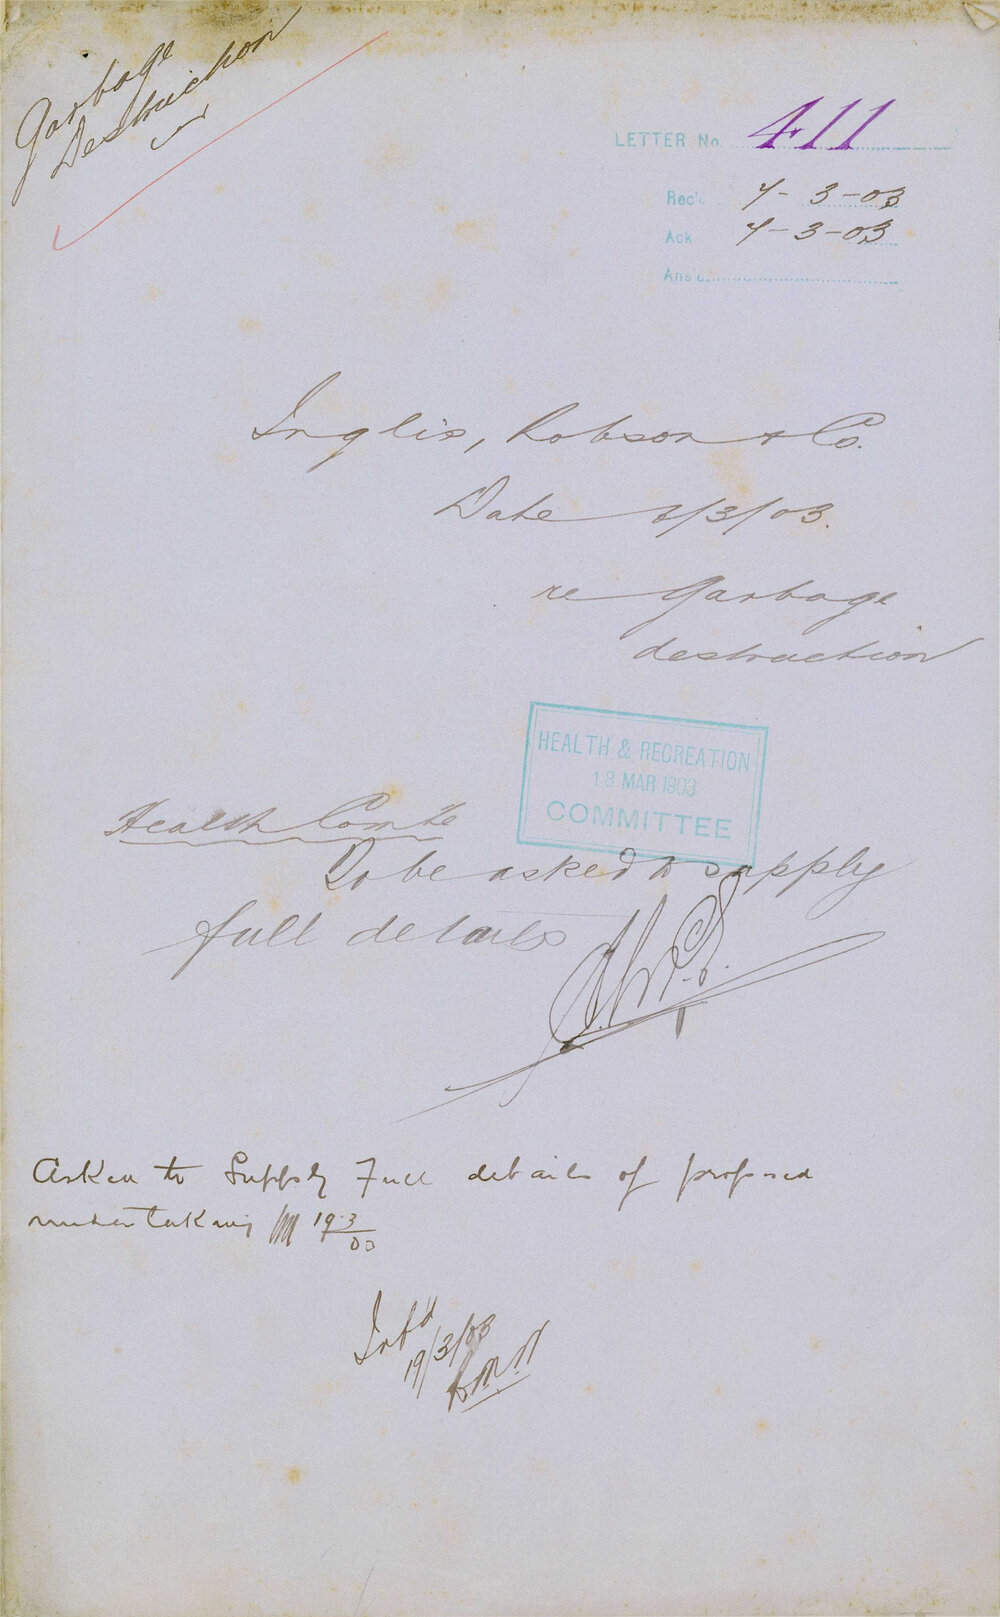 Garbage
Destruction
LETTER No. 411
Rec'd 7-3-03
Ack. 7-3-03
Ans'd.
Inglis, Robson & Co.
Date /3/03.
re Garbage
destruction
HEALTH & RECREATION
18 MAR 1903
COMMITTEE
Health Comte
To be asked to supply
full details
Asked to Supply Full details of proposed
undertaking 19.3/03
Inf'd
19/3/03